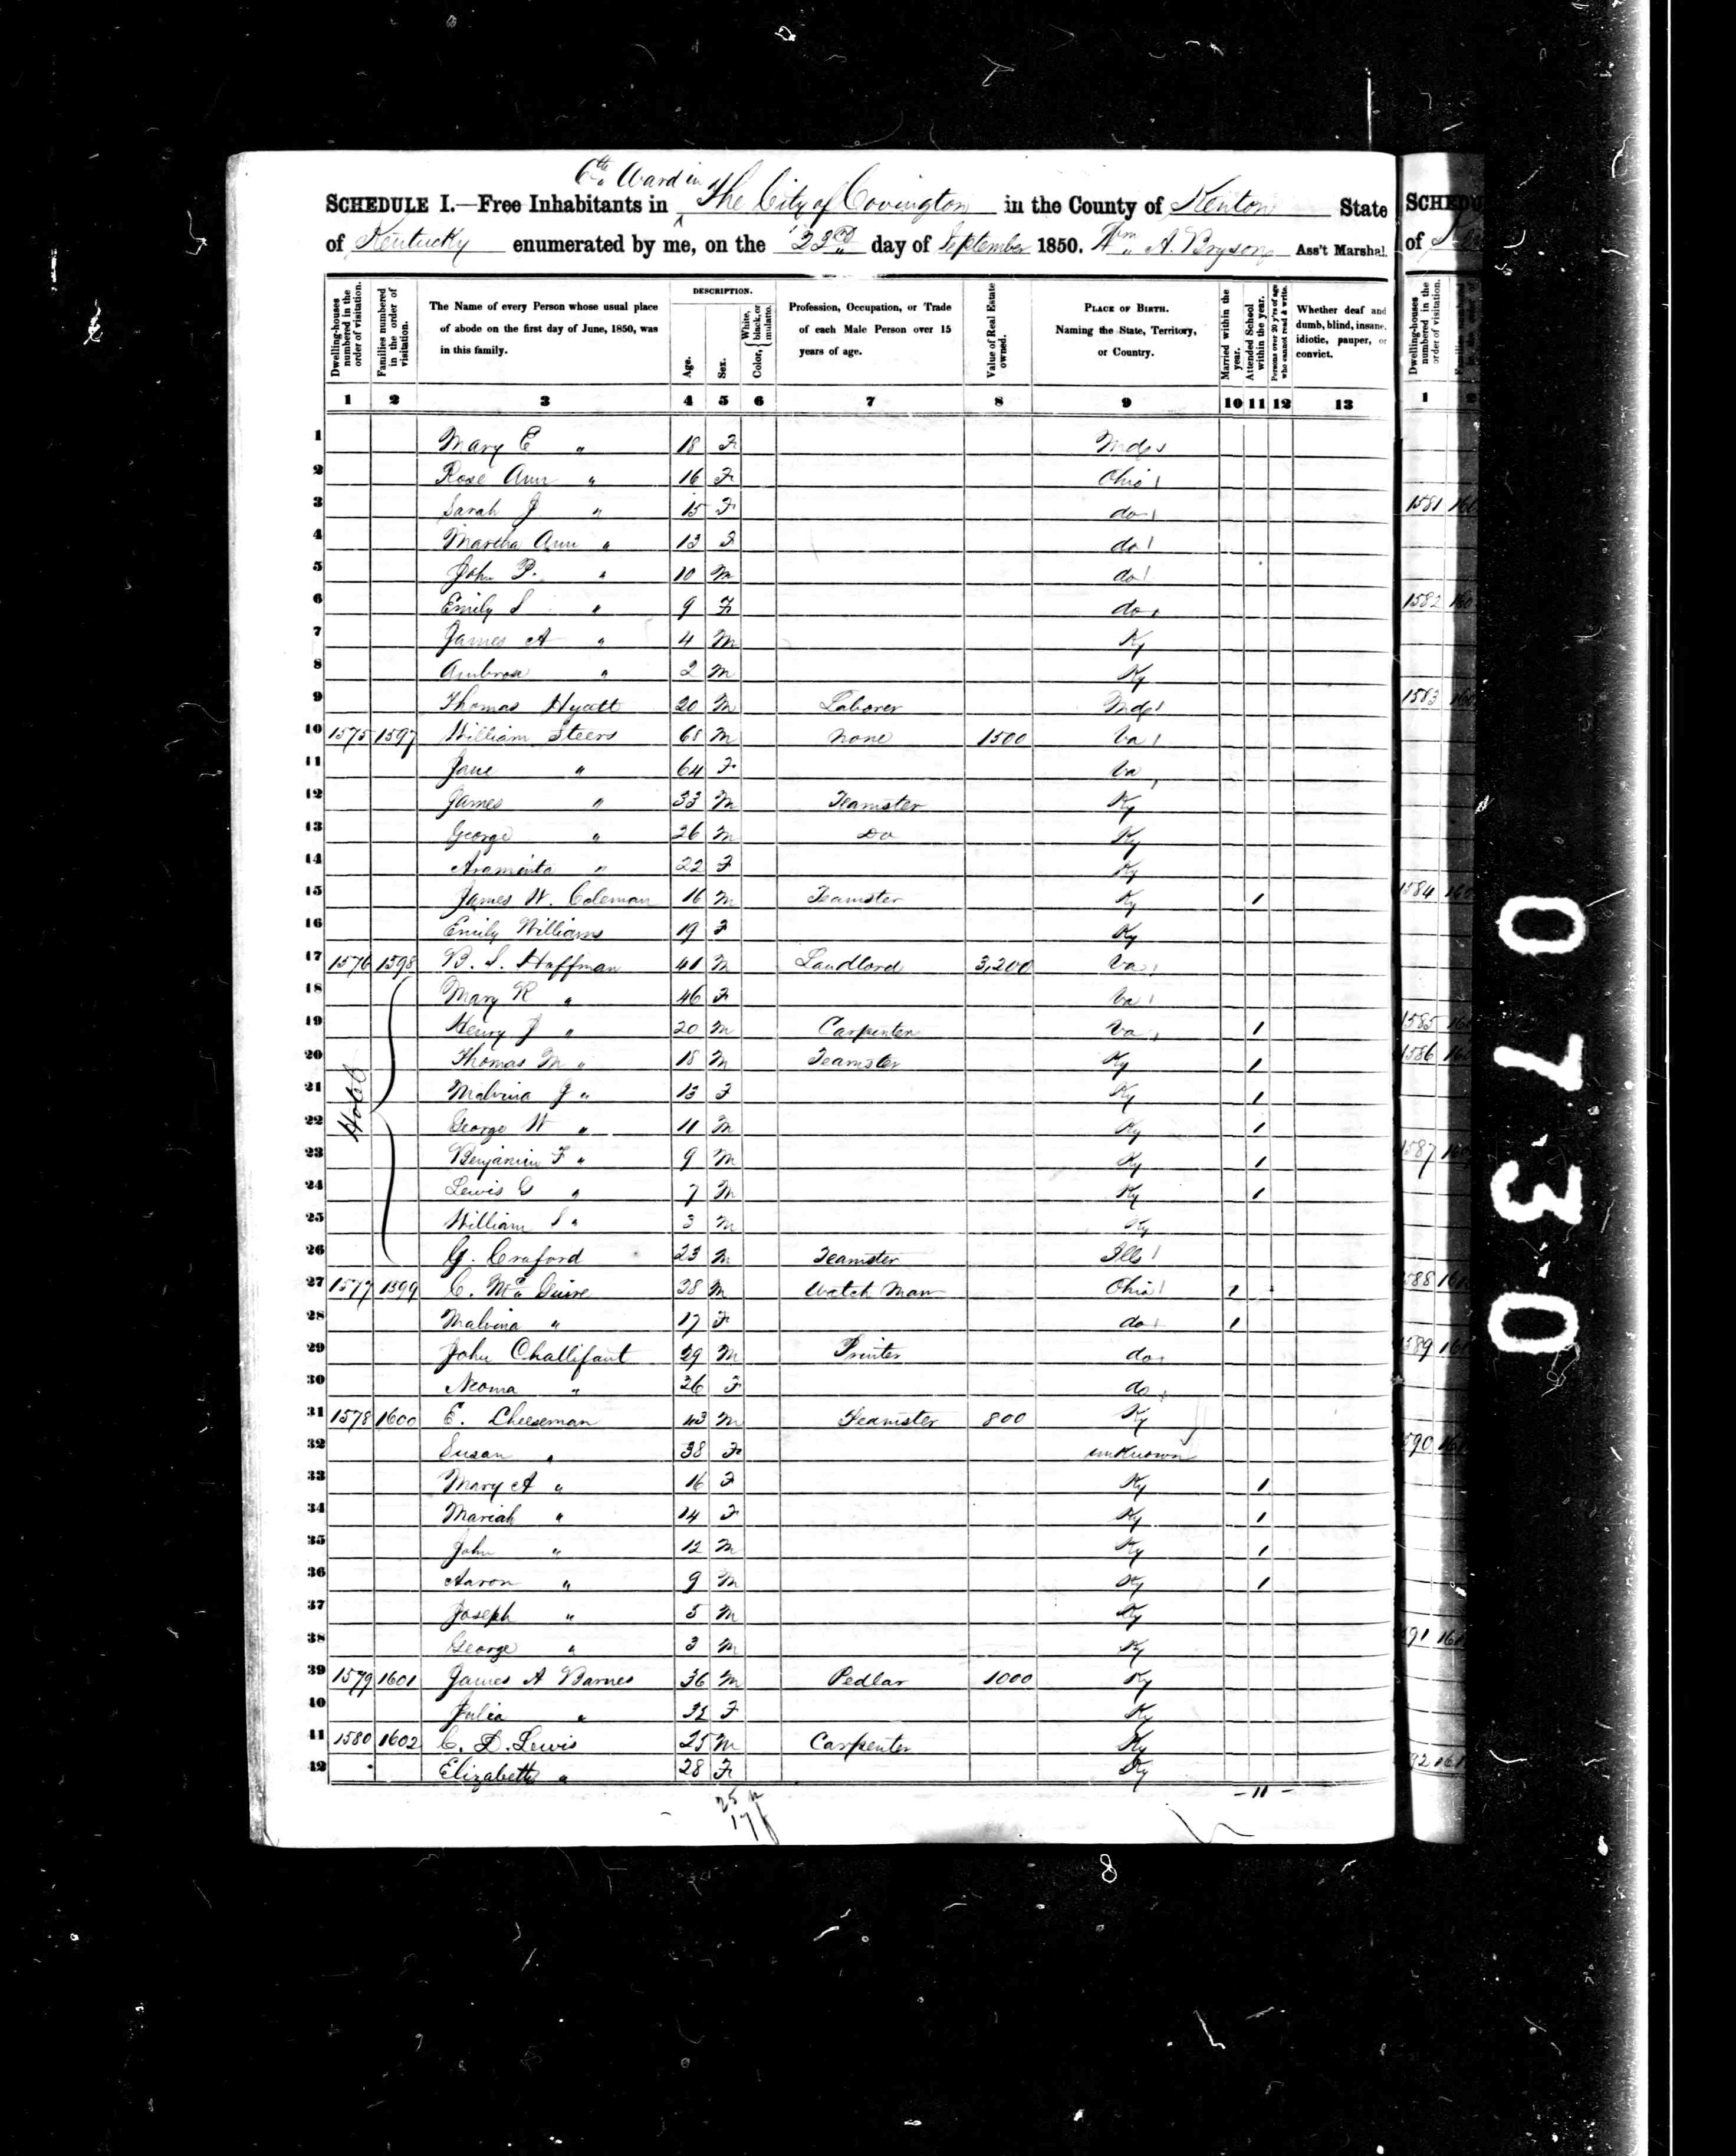 6th Ward in
SCHEDULE I.—Free Inhabitants in The City of Covington in the County of Kenton State
of Kentucky enumerated by me, on the 23rd day of September 1850. Wm A. Bryson Ass't Marshal.
Dwelling-houses numbered in the order of visitation.
Families numbered in the order of visitation.
The Name of every Person whose usual place of abode on the first day of June, 1850, was in this family.
DESCRIPTION.
Age.
Sex.
Color, { White, black, or mulatto.
Profession, Occupation, or Trade of each Male Person over 15 years of age.
Value of Real Estate owned.
PLACE OF BIRTH. Naming the State, Territory, or Country.
Married within the year.
Attended School within the year.
Persons over 20 y'rs of age who cannot read & write.
Whether deaf and dumb, blind, insane, idiotic, pauper, or convict.
1 2 3 4 5 6 7 8 9 10 11 12 13
1 Mary E " 18 F Md
2 Rose Ann " 16 F Ohio
3 Sarah J " 15 F do
4 Martha Ann " 13 F do
5 John P. " 10 M do
6 Emily S " 9 F do
7 James A " 4 M Ky
8 Ambrose " 2 M Ky
9 Thomas Hyatt 20 M Laborer Md
10 1575 1597 William Steers 68 M None 1500 Va
11 Jane " 64 F Va
12 James " 33 M Teamster Ky
13 George " 26 M Do Ky
14 Araminta " 22 F Ky
15 James W. Coleman 16 M Teamster Ky 1
16 Emily Williams 19 F Ky
17 1576 1598 B. S. Huffman 41 M Landlord 3,200 Va
18 Mary R " 46 F Va
19 Henry J " 20 M Carpenter Va 1
20 Thomas M " 18 M Teamster Ky 1
21 Malvina J " 13 F Ky 1
Hotel
22 George W " 11 M Ky 1
23 Benjamin F " 9 M Ky 1
24 Lewis G " 7 M Ky 1
25 William S " 3 M Ky
26 G. Craford 23 M Teamster Ills
27 1577 1599 C. McGuire 28 M Watch Man Ohio 1
28 Malvina " 17 F do 1
29 John Challifant 29 M Printer do
30 Neoma " 26 F do
31 1578 1600 E. Cheeseman 43 M Teamster 800 Ky
32 Susan " 38 F unknown
33 Mary A " 16 F Ky 1
34 Mariah " 14 F Ky 1
35 John " 12 M Ky 1
36 Aaron " 9 M Ky 1
37 Joseph " 5 M Ky
38 George " 3 M Ky
39 1579 1601 James A Barnes 36 M Pedlar 1000 Ky
40 Julia " 32 F Ky
41 1580 1602 C. D. Lewis 25 M Carpenter Ky
42 Elizabeth " 28 F Ky
25
17
- 11 -
8
SCHEDU
of
Dwelling-houses numbered in the order of visitation.
1 2
1581
1582
1583
1584
1585
1586
1587
1588
1589
0730